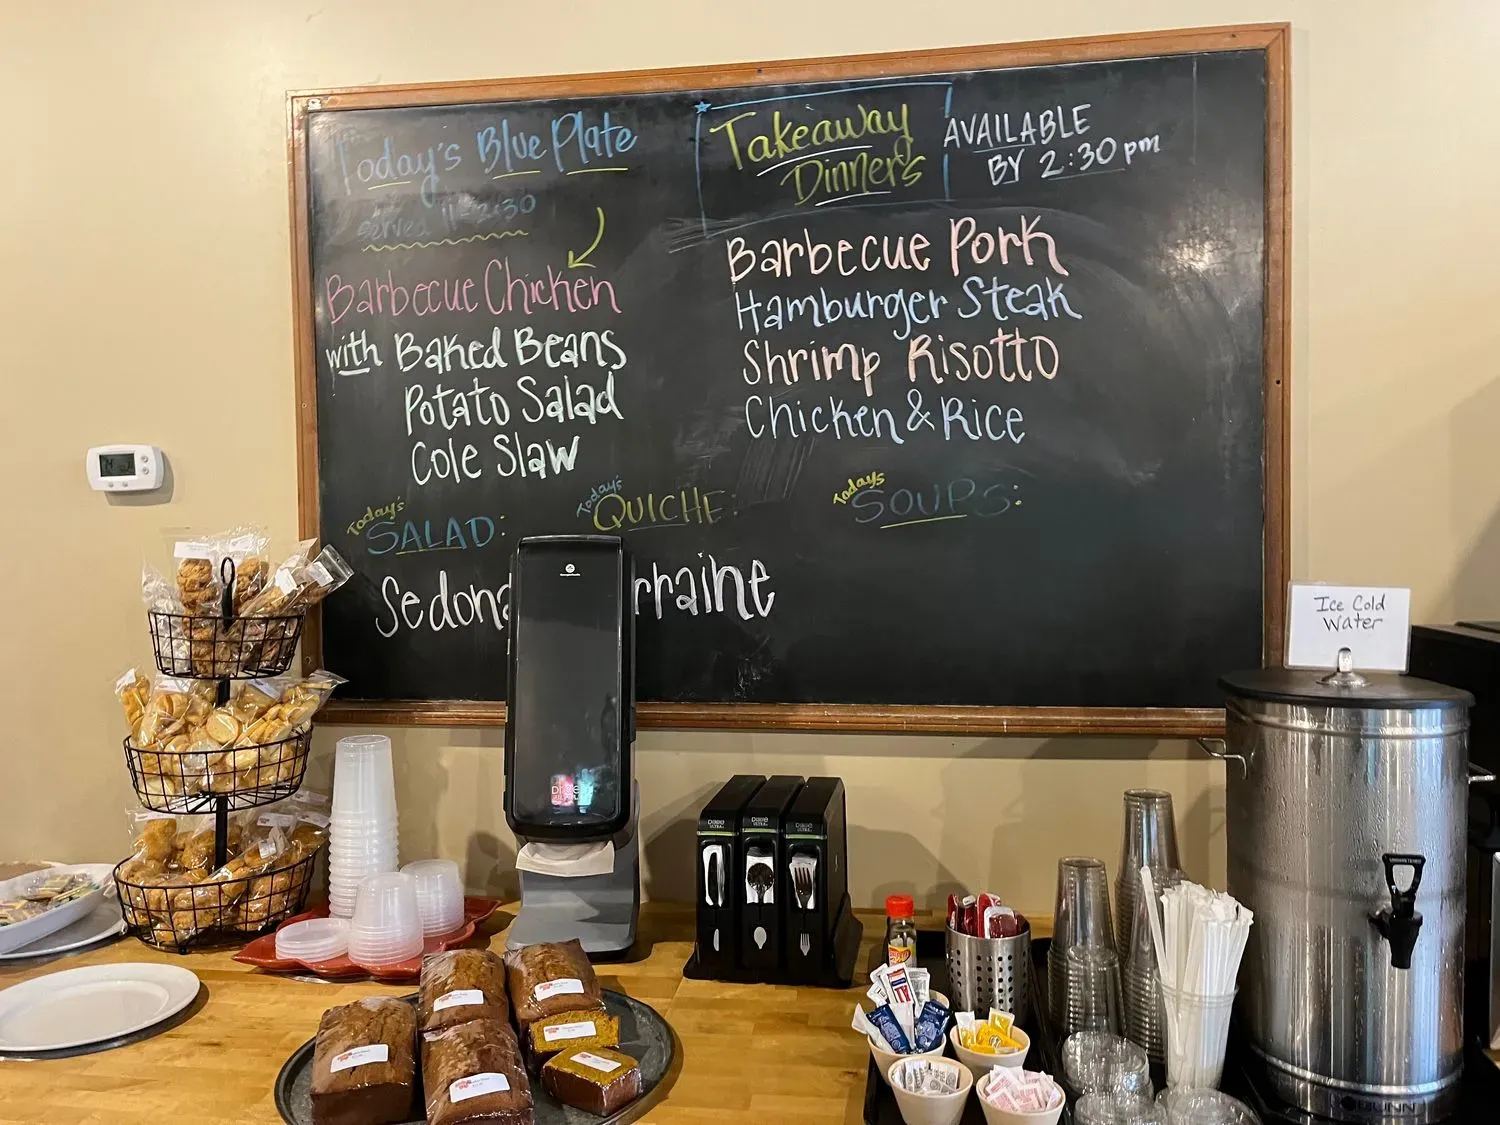 Today's Blue Plate
served 11-2:30
Barbecue Chicken
with Baked Beans
Potato Salad
Cole Slaw
Takeaway
Dinners
AVAILABLE
BY 2:30 pm
Barbecue Pork
Hamburger Steak
Shrimp Risotto
Chicken & Rice
Today's
SALAD:
Sedona
Today's
QUICHE:
rraine
Today's
SOUPS:
Ice Cold
Water
Dixie
Dixie
Dixie
BUNN